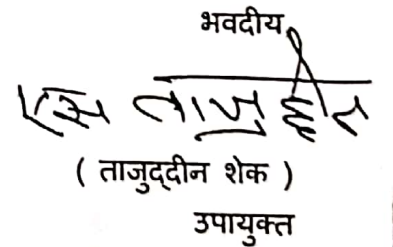 भवदीय
एस ताजुद्दीन
( ताजुद्‌दीन शेक )
उपायुक्त